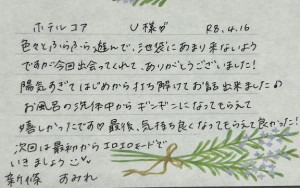 ホテルコア U様が R8.4.16
色々とふらふら遊んで、池袋にあまり来ないよう
ですが今回出会ってくれて、ありがとうございました!
陽気すぎてはじめから打ち解けてお話出来ました♪
お風呂の洗体中からギンギンになってもらえて
嬉しかったです♡ 最後、気持ち良くなってもらえて良かった!
次回は最初からエロエロモードで
いきましょう
新條 すみれ